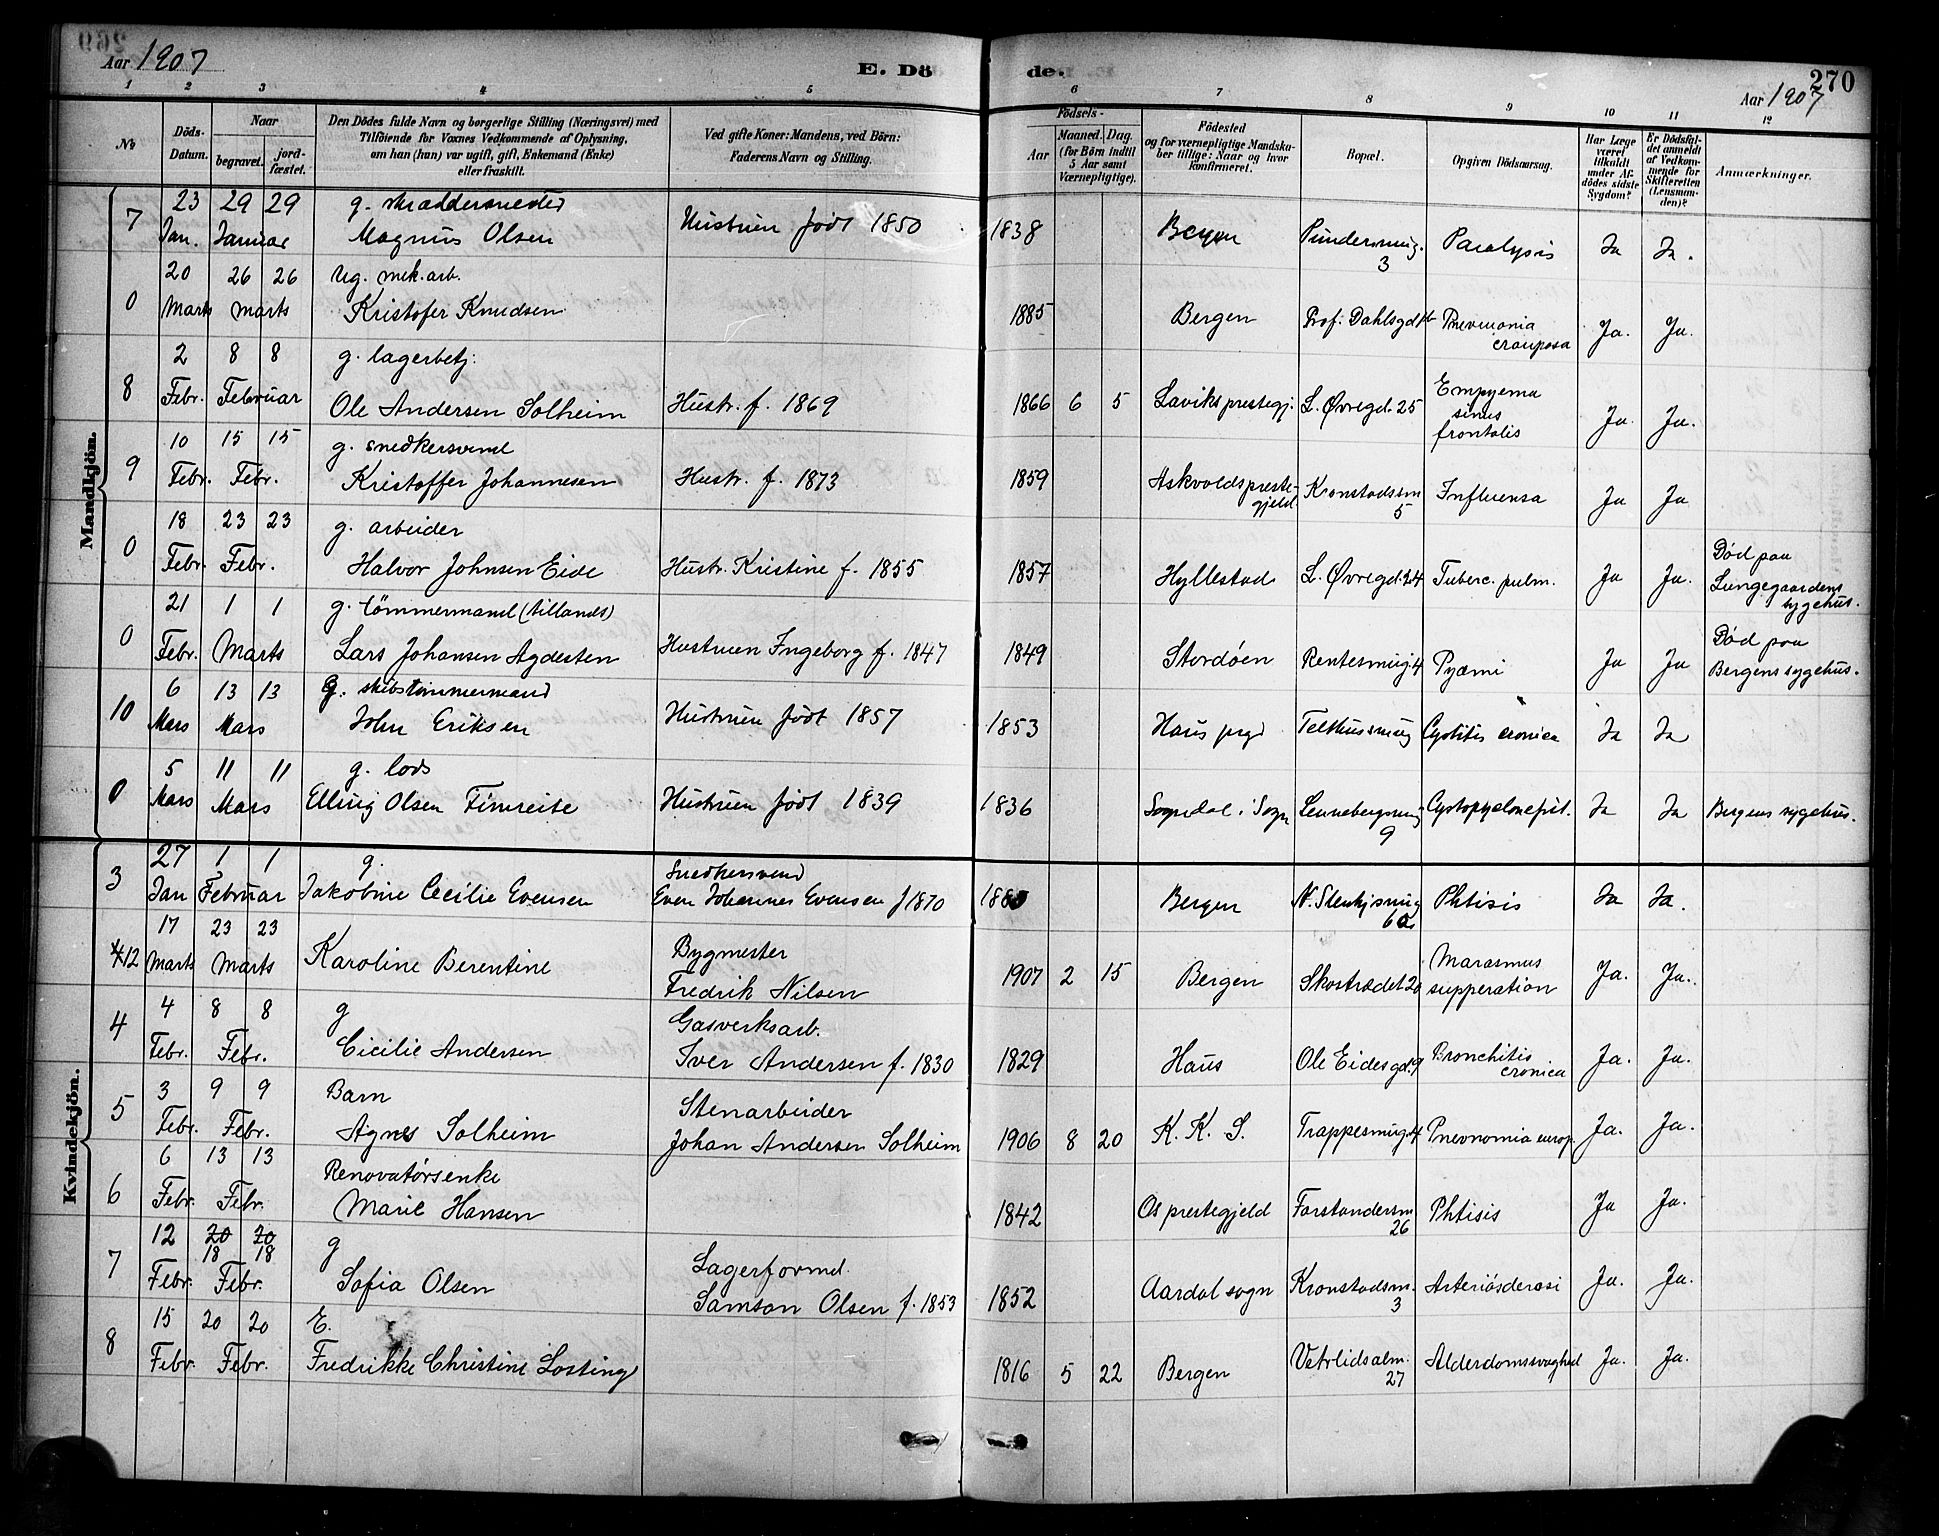 Aar 1907
E. Dö
de.
270
Aar 1907
1 2 3 4 5 6 7 8 9 10 11 12
No
Döds-Datum.
Naar
begravet.
jordfæstet.
Den Dödes fulde Navn og borgerlige Stilling (Næringsvei) med
Tilföiende for Voxnes Vedkommende af Oplysning,
om han (hun) var ugift, gift, Enkemand (Enke)
eller fraskilt.
Ved gifte Koner: Mandens, ved Börn:
Faderens Navn og Stilling.
Födsels-
Aar
Maaned. Dag.
(for Börn indtil
5 Aar samt
Værnepligtige).
Födested
og for værnepligtige Mandskaber tillige: Naar og hvor
konfirmeret.
Bopæl.
Opgiven Dödsaarsag.
Har Læge
været
tilkaldt
under Afdödes sidste
Sygdom?
Er Dödsfaldet anmeldt
af Vedkommende for
Skifteretten
(Lensmanden)?
Anmærkninger.
Mandkjön.
23 29 29 g. skræddersvend
7 Jan. Januar Magnus Olsen Hustruen født 1850 1838 Bergen Pundersmug. 3 Paralysis Ja Ja.
20 26 26 Ug. mek. arb.
0 Marts Marts Kristofer Knudsen 1885 Bergen Prof. Dahlsgd Pnevmonia crouposa Ja. Ja.
2 8 8 g. lagerbetj.
8 Febr. Februar Ole Andersen Solheim Hustr. f. 1869 1866 6 5 Laviks prestegj. L. Øvregd. 25 Empyema sinus frontalis Ja. Ja.
10 15 15 g. snedkersvend
9 Febr. Febr. Kristoffer Johannesen Hustr. f. 1873 1859 Askvolds prestegjeld Kronstadsm 5 Influensa Ja Ja
18 23 23 g. arbeider
0 Febr. Febr. Halvor Johnsen Eide Hustr. Kristine f. 1855 1857 Hyllestad L. Øvregd. 24 Tuberc. pulm. Ja Ja. Død paa Lungegaardens sygehus.
21 1 1 g. tømmermand (tillands)
0 Febr. Marts Lars Johansen Agdesten Hustruen Ingeborg f. 1847 1849 Stordøen Rentesmug. 4 Pyæmi Ja Ja Død paa Bergens sygehus.
6 13 13 g. skibstømmermand
10 Mars Mars John Eriksen Hustruen født 1857 1853 Haus prgd Telthussmug Cystitis cronica Ja Ja
5 11 11 g. lods
0 Mars Mars Elling Olsen Fimreite Hustruen født 1839 1836 Sogndal i Sogn Lennebergsmug 9 Cystopyelonefrit. Ja Ja Bergens sygehus.
Kvindekjön.
27 1 1 g. Snedkersvend
3 Jan Februar Jakobine Cecilie Evensen Even Johannes Evensen f 1870 Bergen N. Stenkjsmug Phtisis Ja Ja.
17 23 23 Bygmester
12 Marts Marts Karoline Berentine Fredrik Nilsen 1907 2 15 Bergen Skostrædet 20 Marasmus supperation Ja. Ja.
4 8 8 g Gasverksarb.
4 Febr. Febr. Cicilie Andersen Iver Andersen f. 1830 1829 Haus Ole Eidesgd. 9 Bronchitis cronica Ja. Ja.
3 9 9 Barn Stenarbeider
5 Febr. Febr. Agnes Solheim Johan Andersen Solheim 1906 8 20 K. K. S. Trappesmug. 4 Pnevnomia Ja. Ja.
6 13 13 Renovatørsenke
6 Febr. Febr. Marie Hansen 1842 Os prestegjeld Forstandersm 26 Phtisis Ja Ja.
12 20 20 g Lagerformd.
18 18
7 Febr. Febr. Sofia Olsen Samson Olsen f. 1853 1852 Aardal sogn Kronstadsm. 3 Arteriósderosi Ja. Ja.
15 20 20 E.
8 Febr. Febr. Fredrikke Christine Losting 1816 5 22 Bergen Vetrlidsalm. 27 Alderdomssvaghed Ja. Ja.